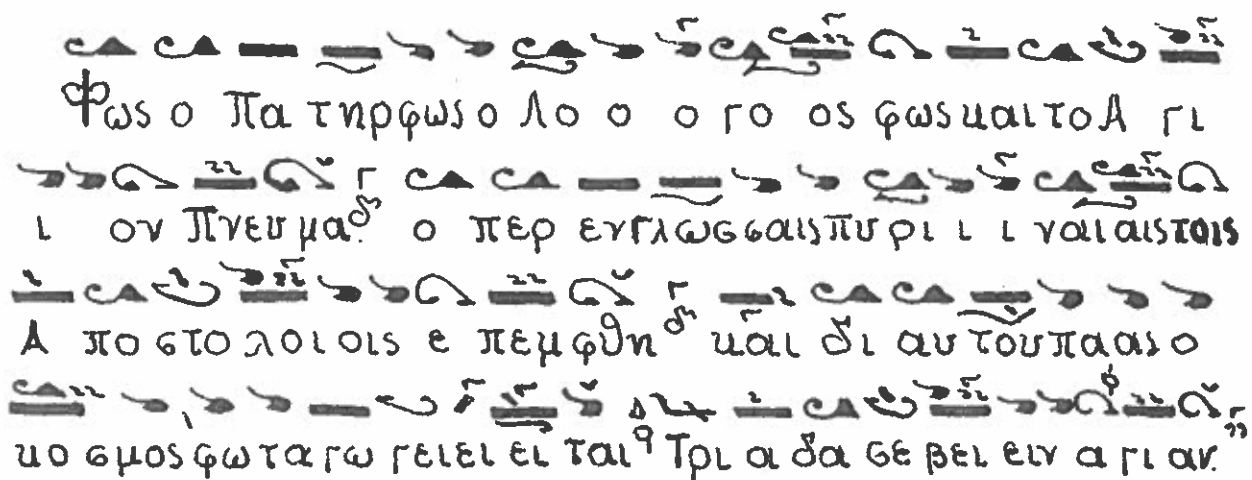 Φως ο Πα τηρ φως ο Λο ο ο γο ος φως και το Α γι
ι ον Πνευ μα. ο περ εν γλωσσαις πυ ρι ι ι ναι αις τοις
Α πο στο λοι οις ε πεμ φθη και δι αυ του πα ας ο
κο σμος φω τα γω γει ει ει ται Τρι α δα σε βει ειν α γι αν.